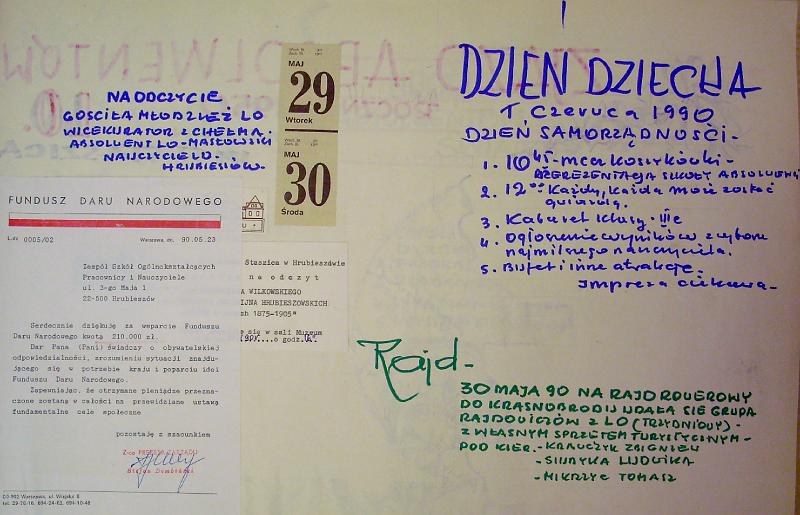 NA ODCZYCIE
GOŚCIŁA MŁODZIEŻ LO
WICEKURATOR Z CHEŁMA.
ABSOLWENT LO - MASŁOWSKI
NAUCZYCIEL D.
HRUBIESZÓW.
MAJ
29
Wtorek
MAJ
30
Środa
FUNDUSZ DARU NARODOWEGO
L.dz 0005/02
Warszawa, dn. 90.05.23
Zespół Szkół Ogólnokształcących
Pracownicy i Nauczyciele
ul. 3-go Maja 1
22-500 Hrubieszów
Serdecznie dziękuję za wsparcie Funduszu
Daru Narodowego kwotą 210.000 zł.
Dar Pana (Pani) świadczy o obywatelskiej
odpowiedzialności, zrozumieniu sytuacji znajdu-
jącego się w potrzebie kraju i poparciu idei
Funduszu Daru Narodowego.
Zapewniając, że otrzymane pieniądze przezna-
czone zostaną w całości na przewidziane ustawą
fundamentalne cele społeczne
pozostaję z szacunkiem
Z-ca PREZESA ZARZĄDU
00-902 Warszawa, ul. Wiejska 8
tel. 29-76-16, 694-24-63, 694-10-46
Staszica w Hrubieszówie
na odczyt
A WILKOWSKIEGO
IJNA HRUBIESZOWSKICH
ch 1875-1905"
e się w sali Muzeum
DZIEŃ DZIECKA
1, Czerwca 1990
DZIEŃ SAMORZĄDNOŚCI -
1. 10 45 - mecz koszykówki -
REPREZENTACJA SZKOŁY ABSOLWENCI
2. 12 00 Każdy, każda może zostać
gwiazdą.
3. Kabaret klasy - IIIc
4. Ogłoszenie wyników z wyboru
najmilszego nauczyciela.
5. Bufet i inne atrakcje.
Impreza ciekawa -
Rajd -
30 MAJA 90 NA RAJD ROWEROWY
DO KRASNOBRODU UDAŁA SIĘ GRUPA
RAJDOWICZÓW Z LO (TRZYDNIOWY) -
Z WŁASNYM SPRZĘTEM TURYSTYCZNYM -
POD KIER. - KRAWCZYK ZBIGNIEW
- SMYRKA LUDWIKA
- MIKRZYC TOMASZ